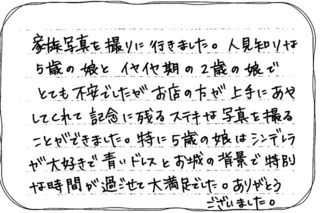 家族写真を撮りに行きました。人見知りな
5歳の娘とイヤイヤ期の2歳の娘で
とても不安でしたがお店の方が上手にあや
してくれて記念に残るステキな写真を撮る
ことができました。特に5歳の娘はシンデレラ
が大好きで青いドレスとお城の背景で特別
な時間が過ごせて大満足でした。ありがとう
ございました。